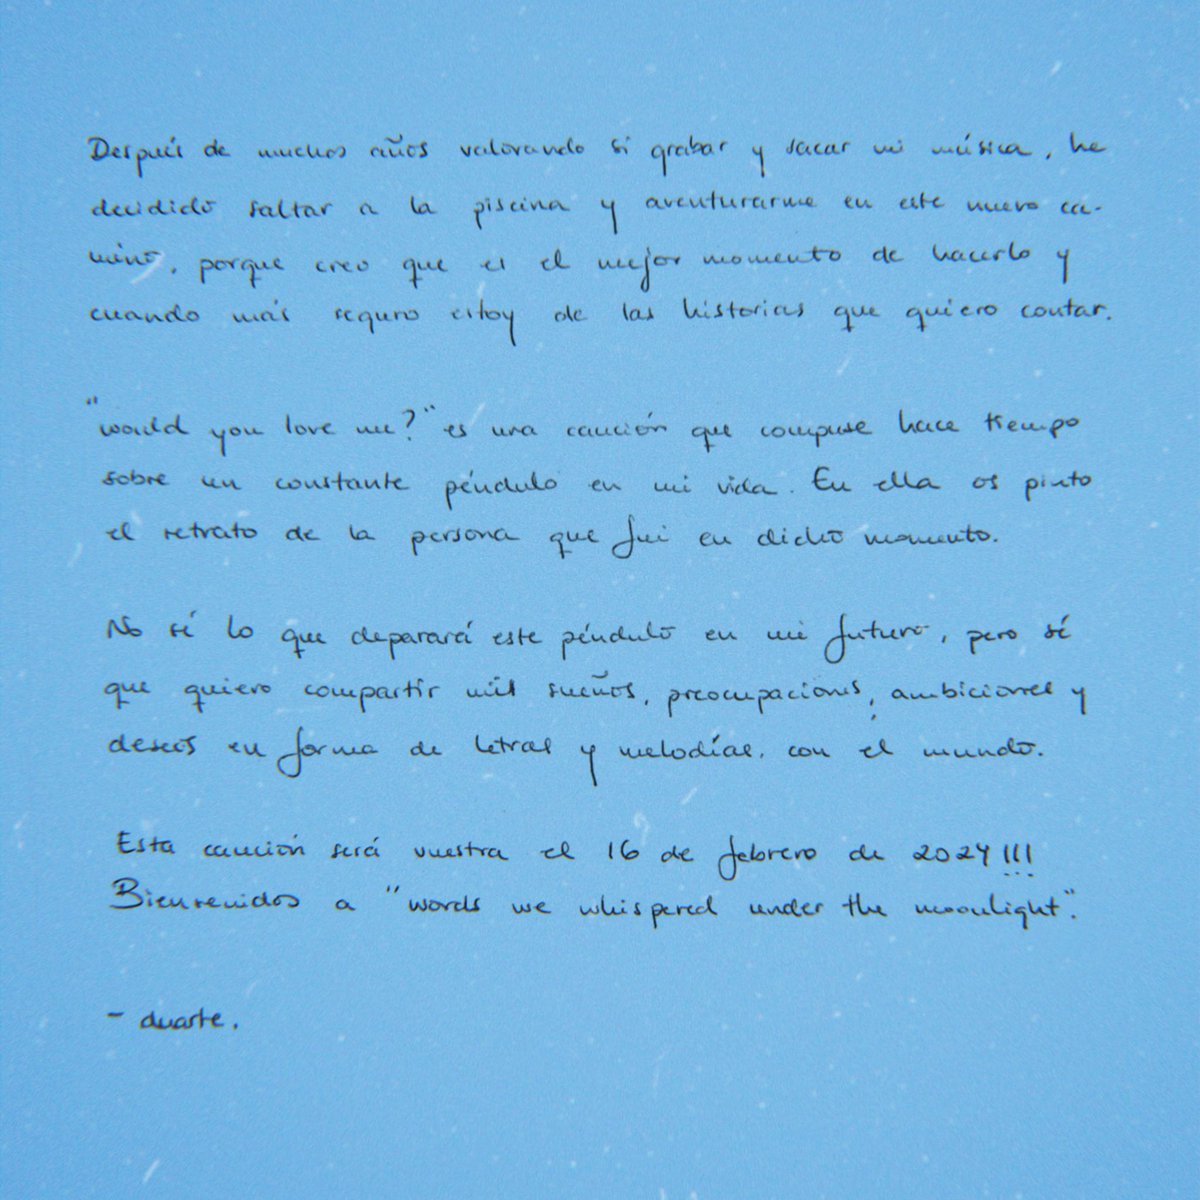 Después de muchos años valorando si grabar y sacar mi música, he
decidido saltar a la piscina y aventurarme en este nuevo ca-
mino, porque creo que es el mejor momento de hacerlo y
cuando más seguro estoy de las historias que quiero contar.
"would you love me?" es una canción que compuse hace tiempo
sobre un constante péndulo en mi vida. En ella os pinto
el retrato de la persona que fui en dicho momento.
No sé lo que deparará este péndulo en mi futuro, pero sé
que quiero compartir mis sueños, preocupaciones, ambiciones y
deseos en forma de letras y melodías, con el mundo.
Esta canción será vuestra el 16 de febrero de 2024!!!
Bienvenidos a "words we whispered under the moonlight".
- duarte.